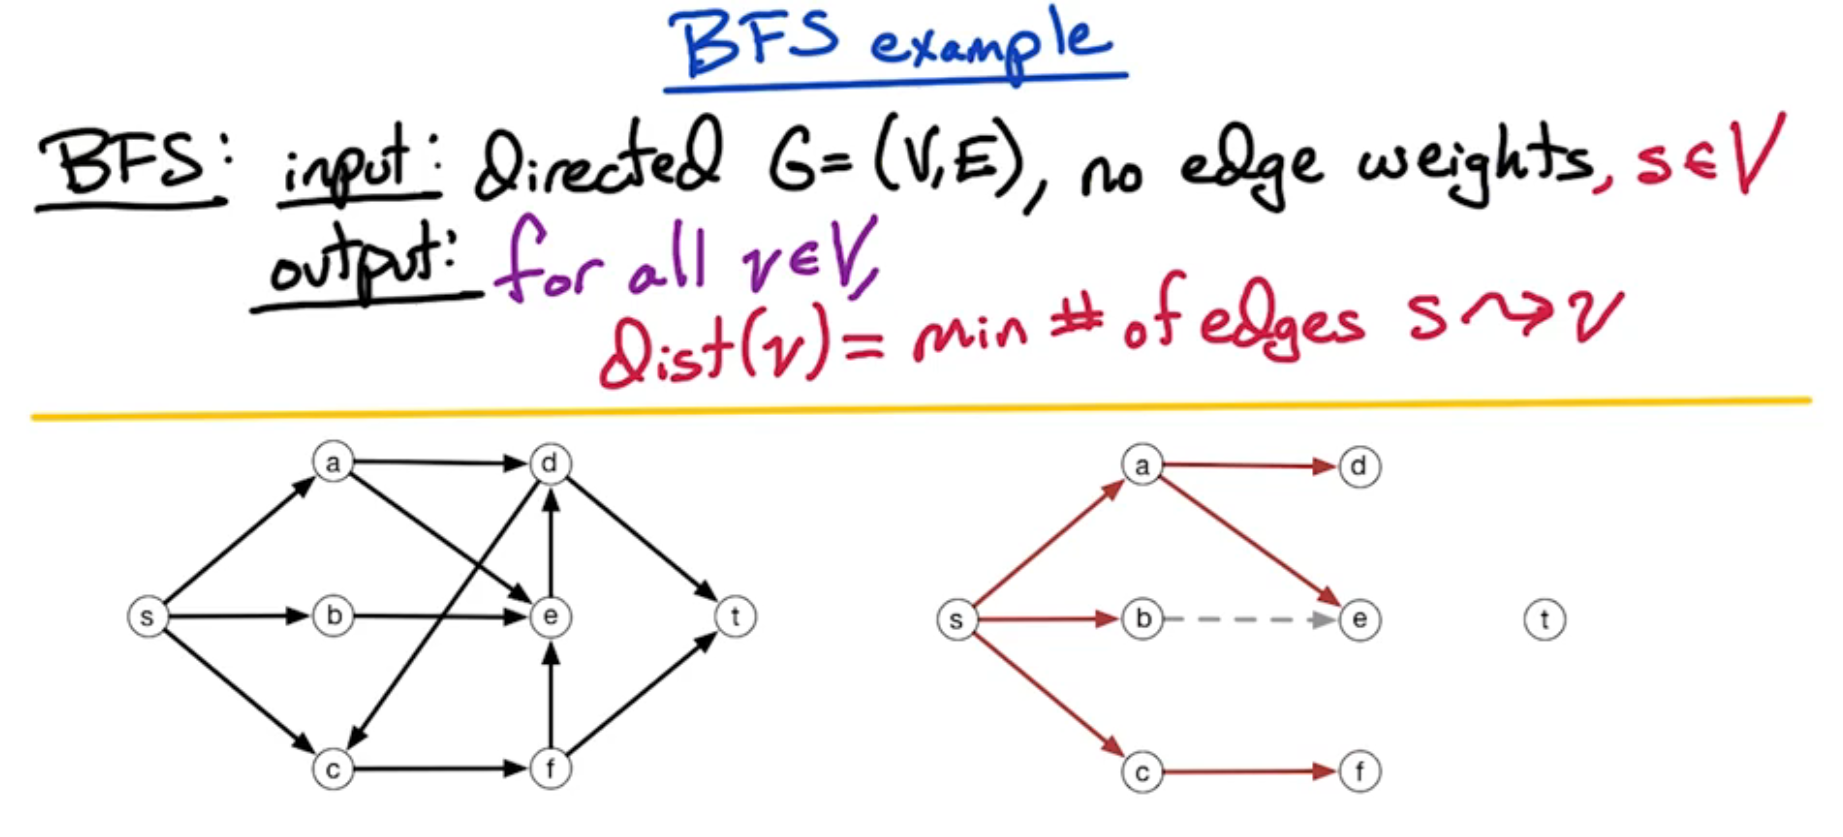 BFS example
BFS: input: directed G=(V,E), no edge weights, s∈V
output: for all v∈V,
dist(v)= min # of edges s⇝v
a d a d
s b e t s b e t
c f c f